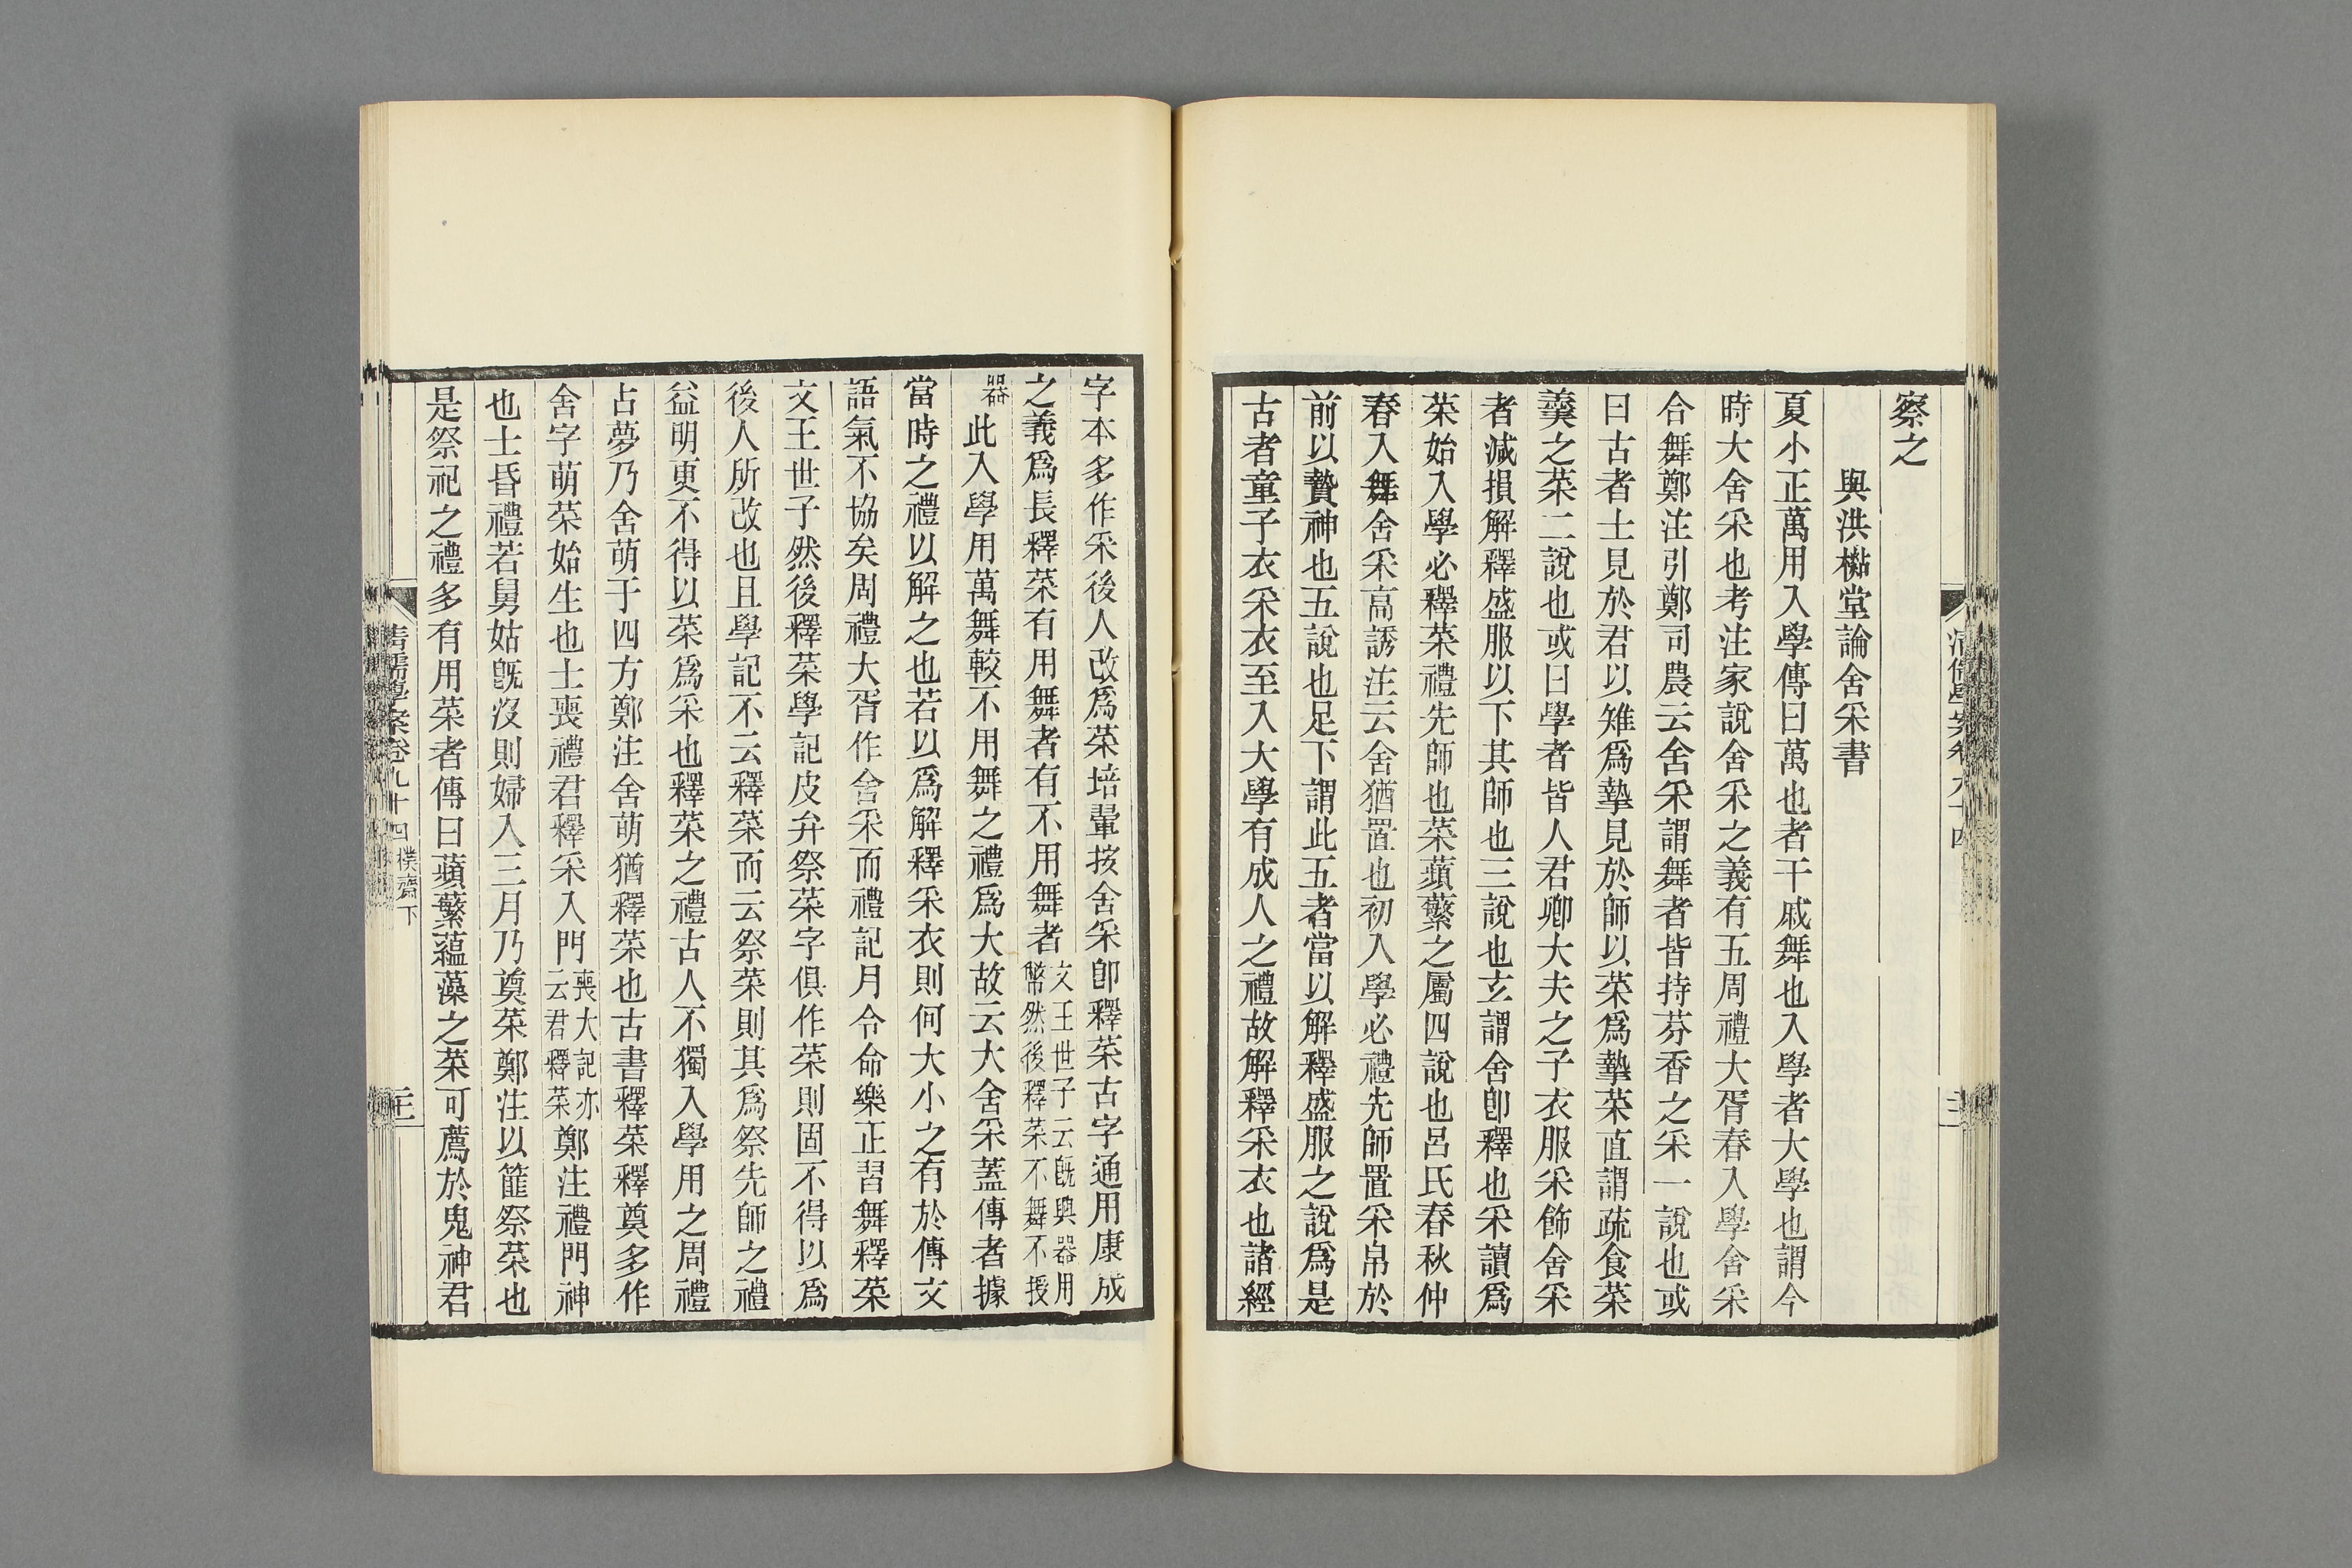 察之
與洪櫯堂論舍采書
夏小正萬用入學傳曰萬也者干戚舞也入學者大學也謂今
時大舍采也考注家說舍采之義有五周禮大胥春入學舍采
合舞鄭注引鄭司農云舍采謂舞者皆持芬香之采一說也或
曰古者士見於君以雉爲摯見於師以菜爲摯菜直謂疏食菜
羹之菜二說也或曰學者皆人君卿大夫之子衣服采飾舍采
者減損解釋盛服以下其師也三說也玄謂舍卽釋也采讀爲
菜始入學必釋菜禮先師也菜蘋蘩之屬四說也呂氏春秋仲
春入舞舍采高誘注云舍猶置也初入學必禮先師置采帛於
前以贄神也五說也足下謂此五者當以解釋盛服之說爲是
古者童子衣采衣至入大學有成人之禮故解釋采衣也諸經
字本多作采後人改爲菜培翬按舍采卽釋菜古字通用康成
之義爲長釋菜有用舞者有不用舞者文王世子云旣興器用
幣然後釋菜不舞不授
器此入學用萬舞較不用舞之禮爲大故云大舍采蓋傳者據
當時之禮以解之也若以爲解釋采衣則何大小之有於傳文
語氣不協矣周禮大胥作舍采而禮記月令命樂正習舞釋菜
文王世子然後釋菜學記皮弁祭菜字俱作菜則固不得以爲
後人所改也且學記不云釋菜而云祭菜則其爲祭先師之禮
益明更不得以菜爲采也釋菜之禮古人不獨入學用之周禮
占夢乃舍萌于四方鄭注舍萌猶釋菜也古書釋菜釋奠多作
舍字萌菜始生也士喪禮君釋采入門喪大記亦
云君釋菜鄭注禮門神
也士昏禮若舅姑旣沒則婦入三月乃奠菜鄭注以篚祭菜也
是祭祀之禮多有用菜者傳曰蘋蘩蘊藻之菜可薦於鬼神君
清儒學案卷九十四 樸齋下